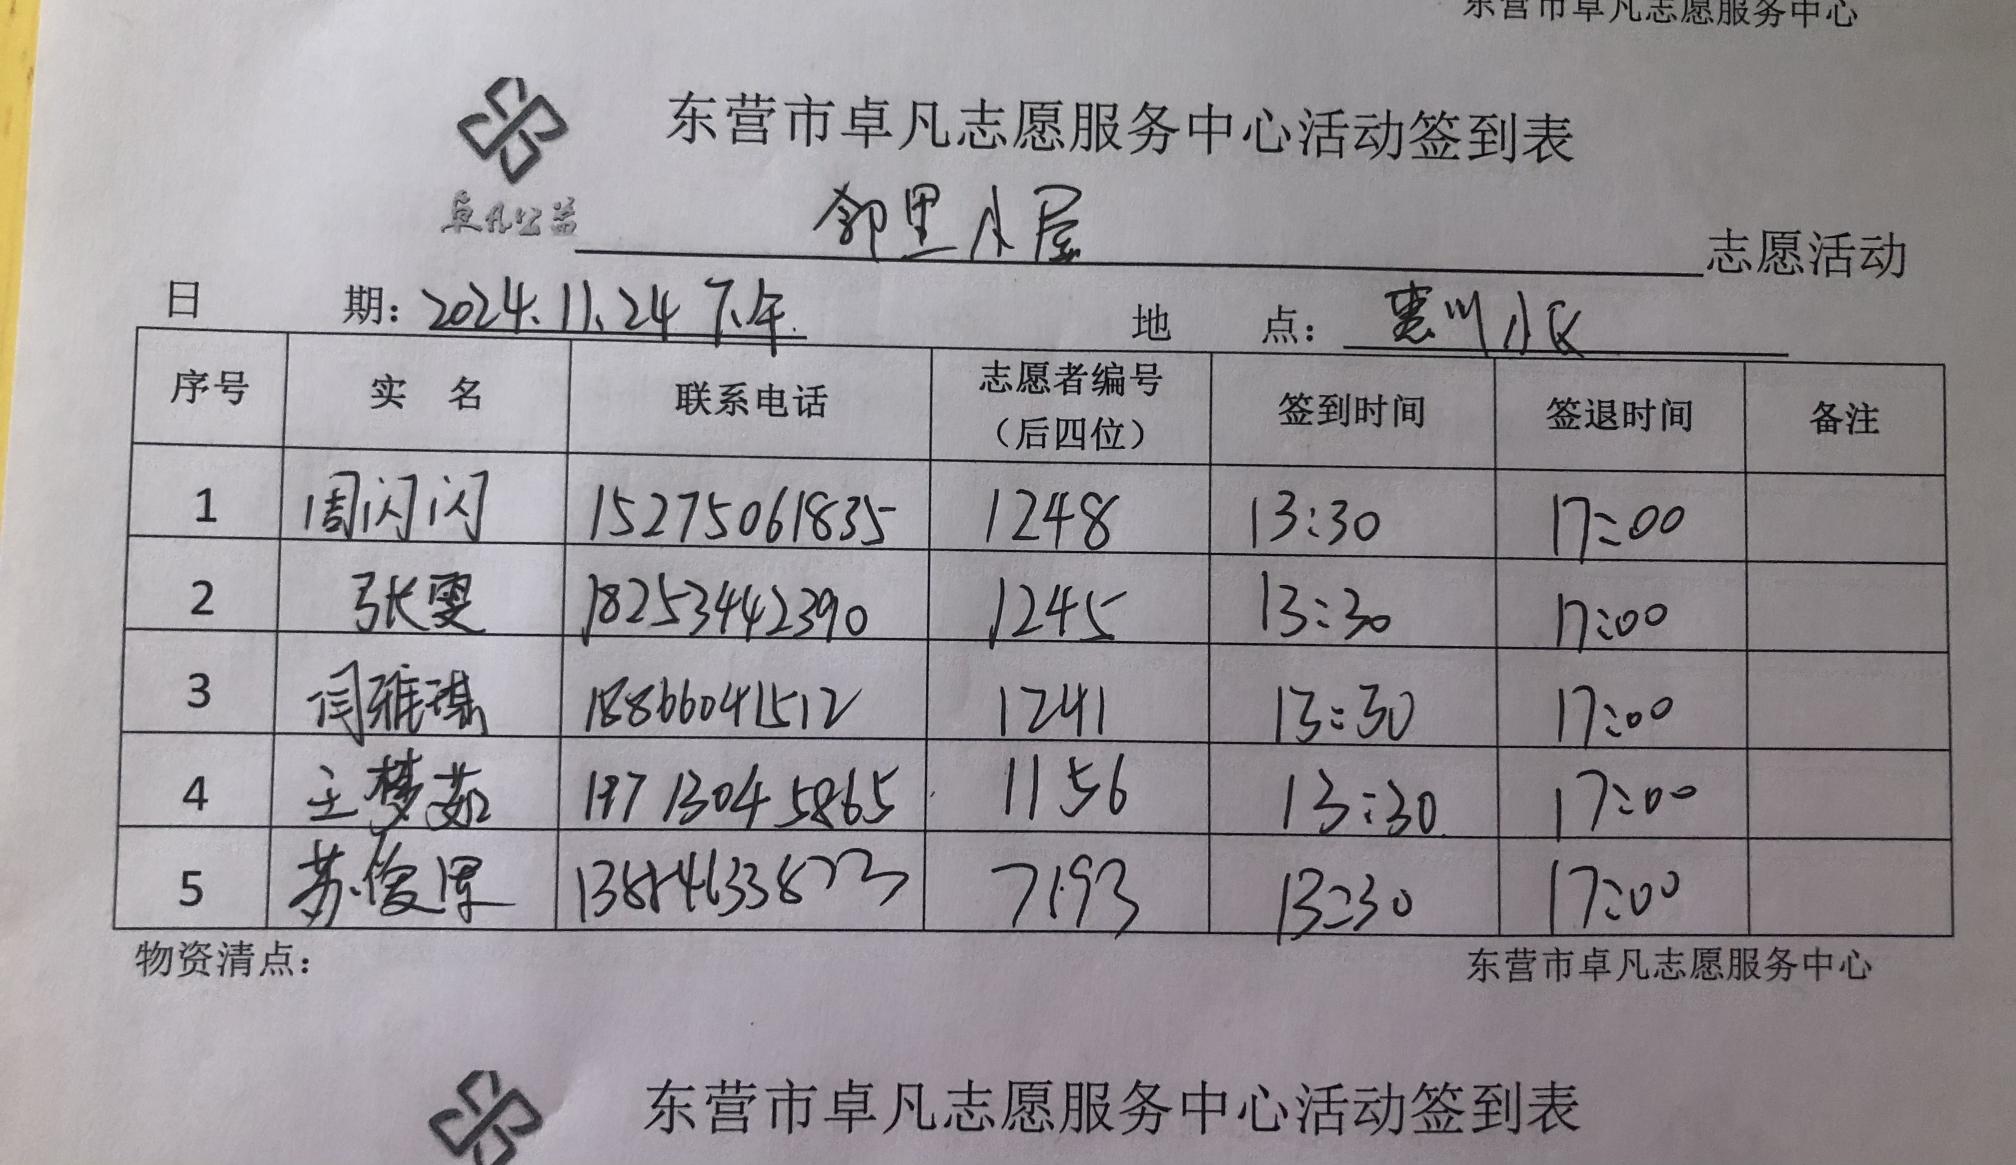 东营市卓凡志愿服务中心
东营市卓凡志愿服务中心活动签到表
卓凡公益
邻里小屋 志愿活动
日 期: 2024.11.24 下午 地 点: 惠州小区
序号 实 名 联系电话 志愿者编号（后四位） 签到时间 签退时间 备注
1 周闪闪 15275061835 1248 13:30 17:00
2 张雯 18253442390 1245 13:30 17:00
3 闫雅琪 18866041512 1241 13:30 17:00
4 王梦茹 1156 13:30 17:00
5 苏俊 7193 13:30 17:00
物资清点: 东营市卓凡志愿服务中心
东营市卓凡志愿服务中心活动签到表